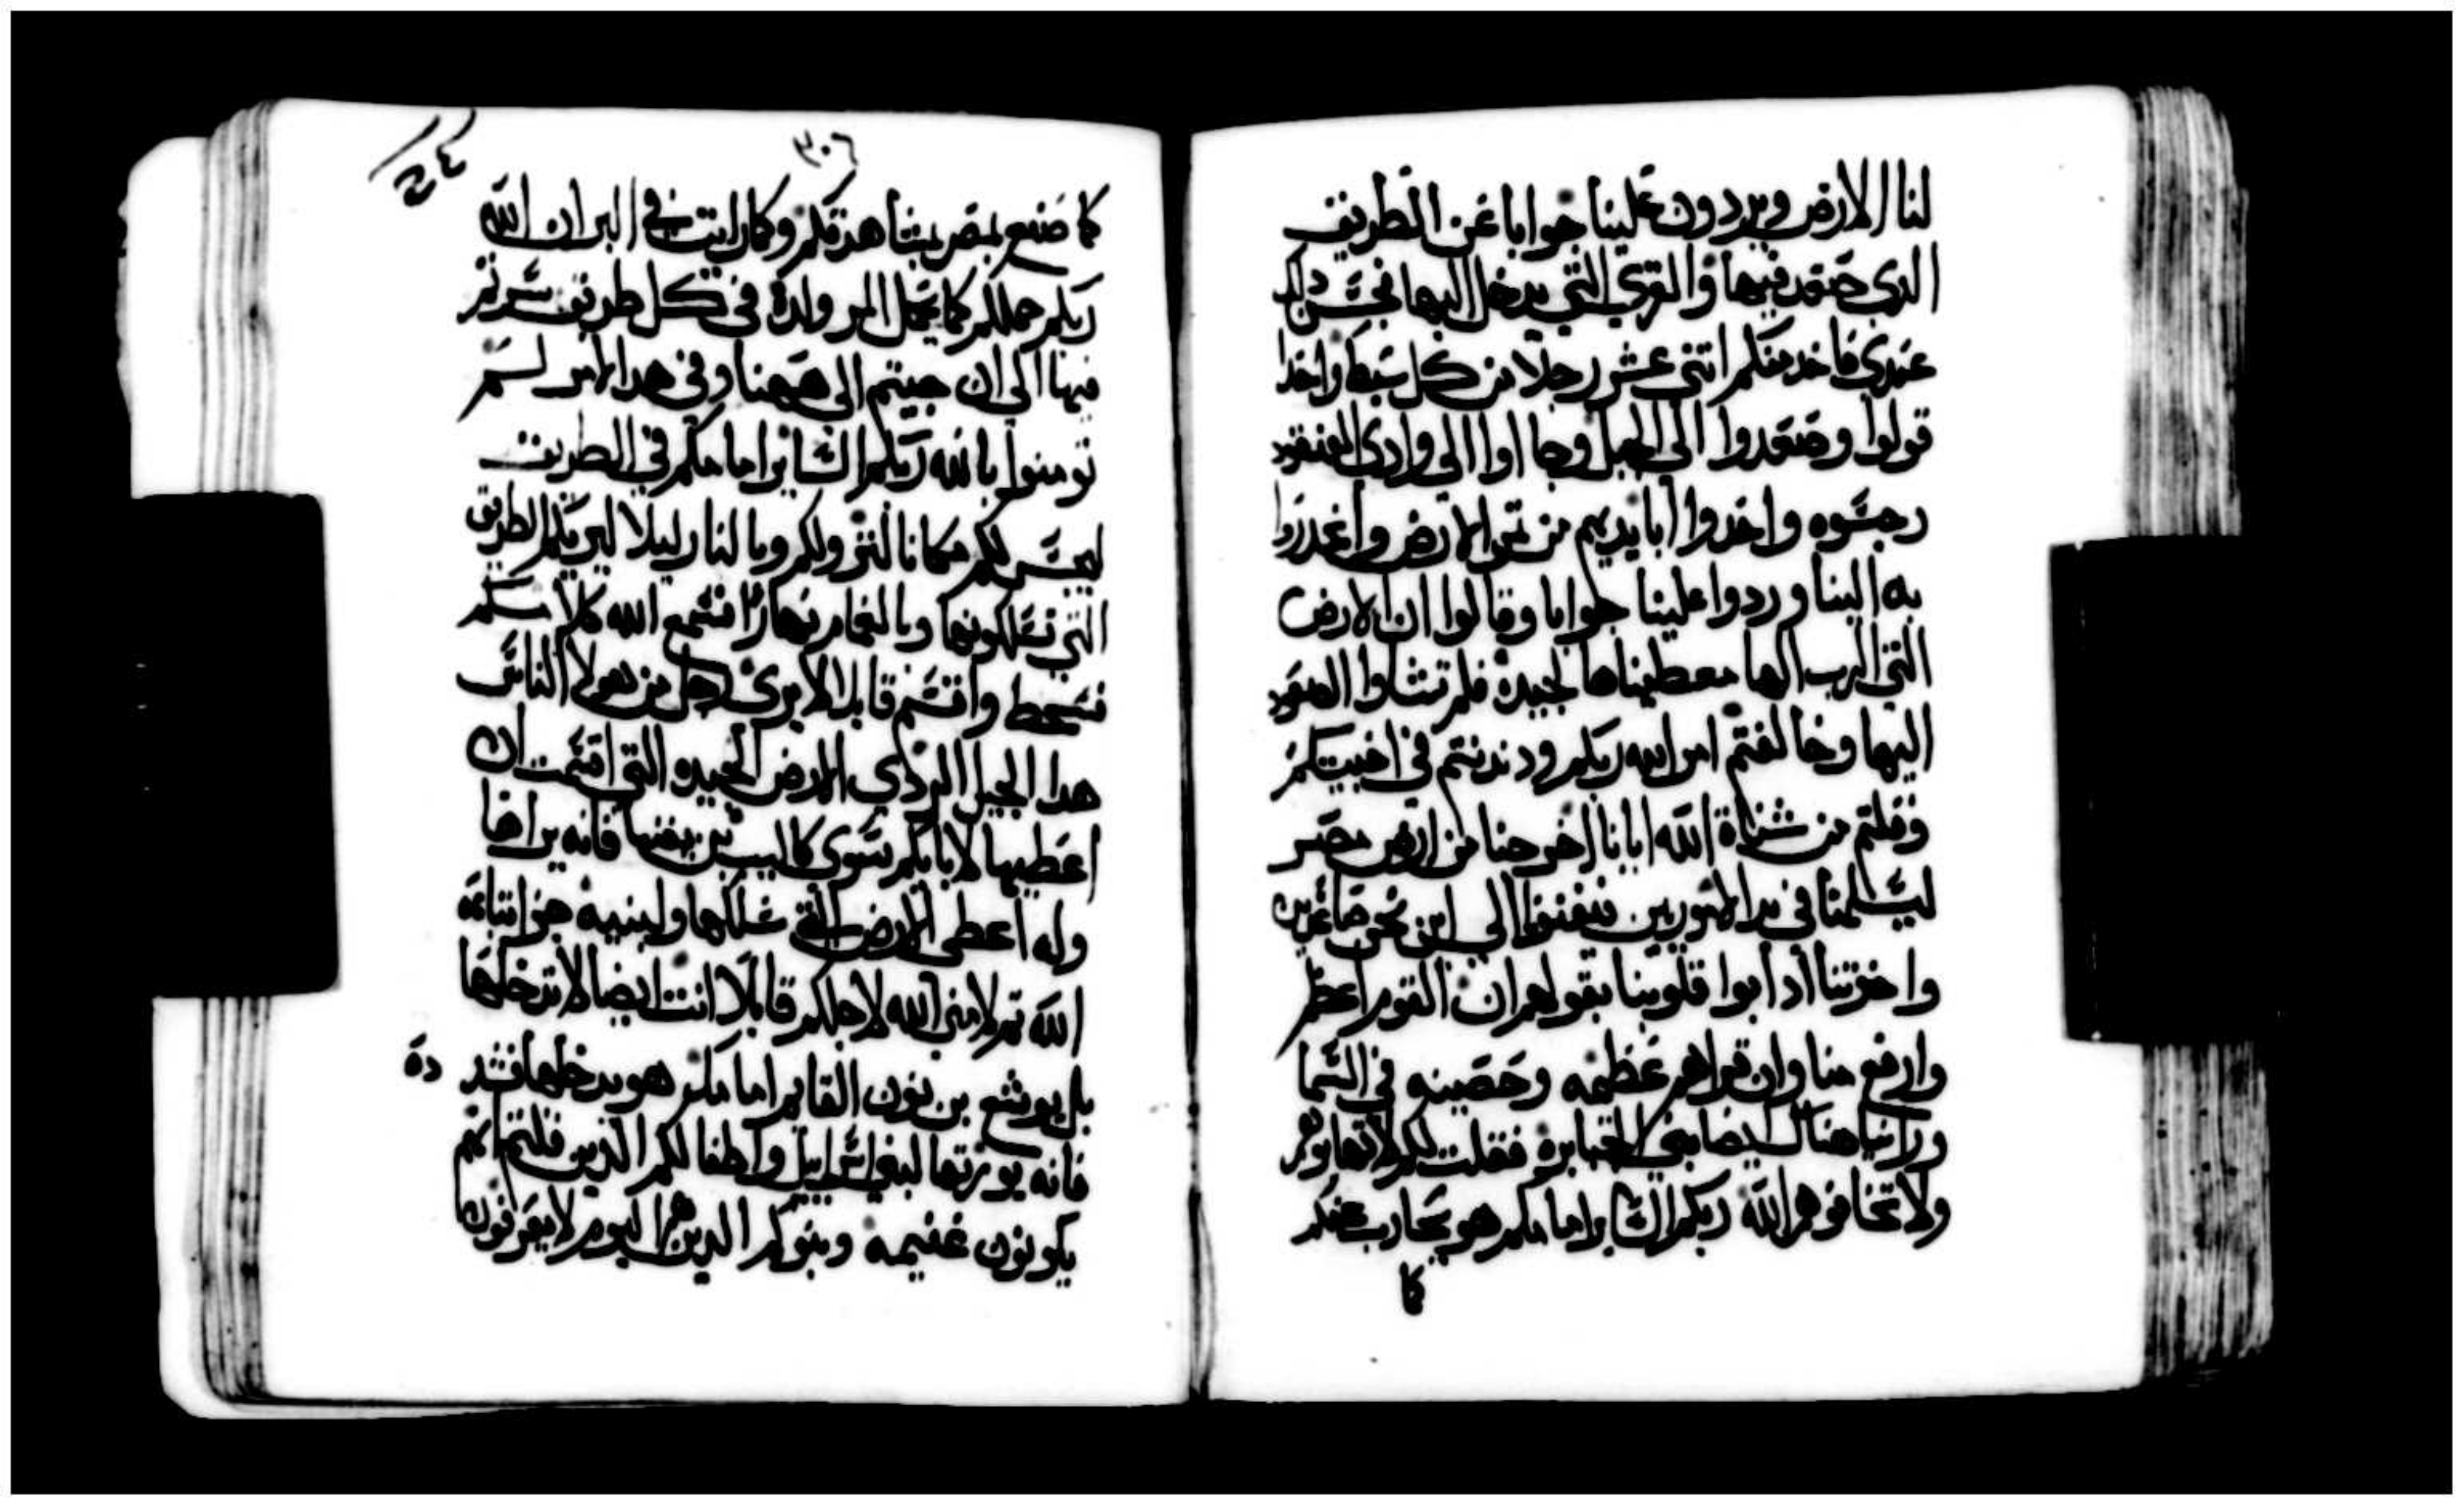 لنا الارض ويردون علينا جوابا عن الطريق
الدى صعد فيها والقرى التى يدخل اليها فحسن دلك
عندى فاخد منكم اتنى عشر رجلا من كل سبط واحدا
قولوا وصعدوا الى الجبل وجااوا الى وادى العنقود
وجسوه واخدوا بايديهم من تمر الارض وانحدروا
به الينا وردوا علينا جوابا وقالوا ان الارض
التى الرب الهنا معطيناها لجيدة فلم تشاوا الصعود
اليها وخالفتم امر الله ربكم ودندنتم فى اخبيتكم
وقلتم من شناة الله ايانا اخرجنا من ارض مصر
ليسلمنا فى يد الاموريين لينفدونا الى اين نحن صاعدين
واخوتنا ادابوا قلوبنا بقولهم ان القوم اعظم
وارفع منا وان قراهم عظيمه وحصينه فى السما
وراينا هناك ايضا بنى الجبابره فقلت لكم لا تهابوهم
ولا تخافوهم الله ربكم الساير امامكم هو يحارب عنكم
كما
٣٠٦
24
كما صنع بمصر بمشاهدتكم وكما رايت فى البر ان الله
ربكم حملكم كما يحمل المر ولده فى كل طريق سرتم
فيها الى ان جيتم الى ههنا وفى هدا الامر لستم
تومنوا بالله ربكم الساير امامكم فى الطريق
ليحسس لكم مكانا لنزولكم وبالنار ليلا ليريكم الطريق
التى تسلكونها وبالغمام نهارا فسمع الله كلامكم
فسخط واقسم قايلا لا يرى رجل من هولا الناس
هدا الجيل الردى الارض الجيده التى اقسمت ان
اعطيها لابايكم سوى كاليب بن يفنها فانه يراها
وله اعطى الارض التى علاها ولبنيه جزا اتباعه
الله تم لامنى الله لاجلكم قايلا انت ايضا لا تدخلها
بل يوشع بن نون القايم امامكم هو يدخلها فشدده
فانه يورثها لبنى اسراييل واطفالكم الدين قلتم انهم
يكونون غنيمه وبنوكم الدين هم اليوم لا يعرفون